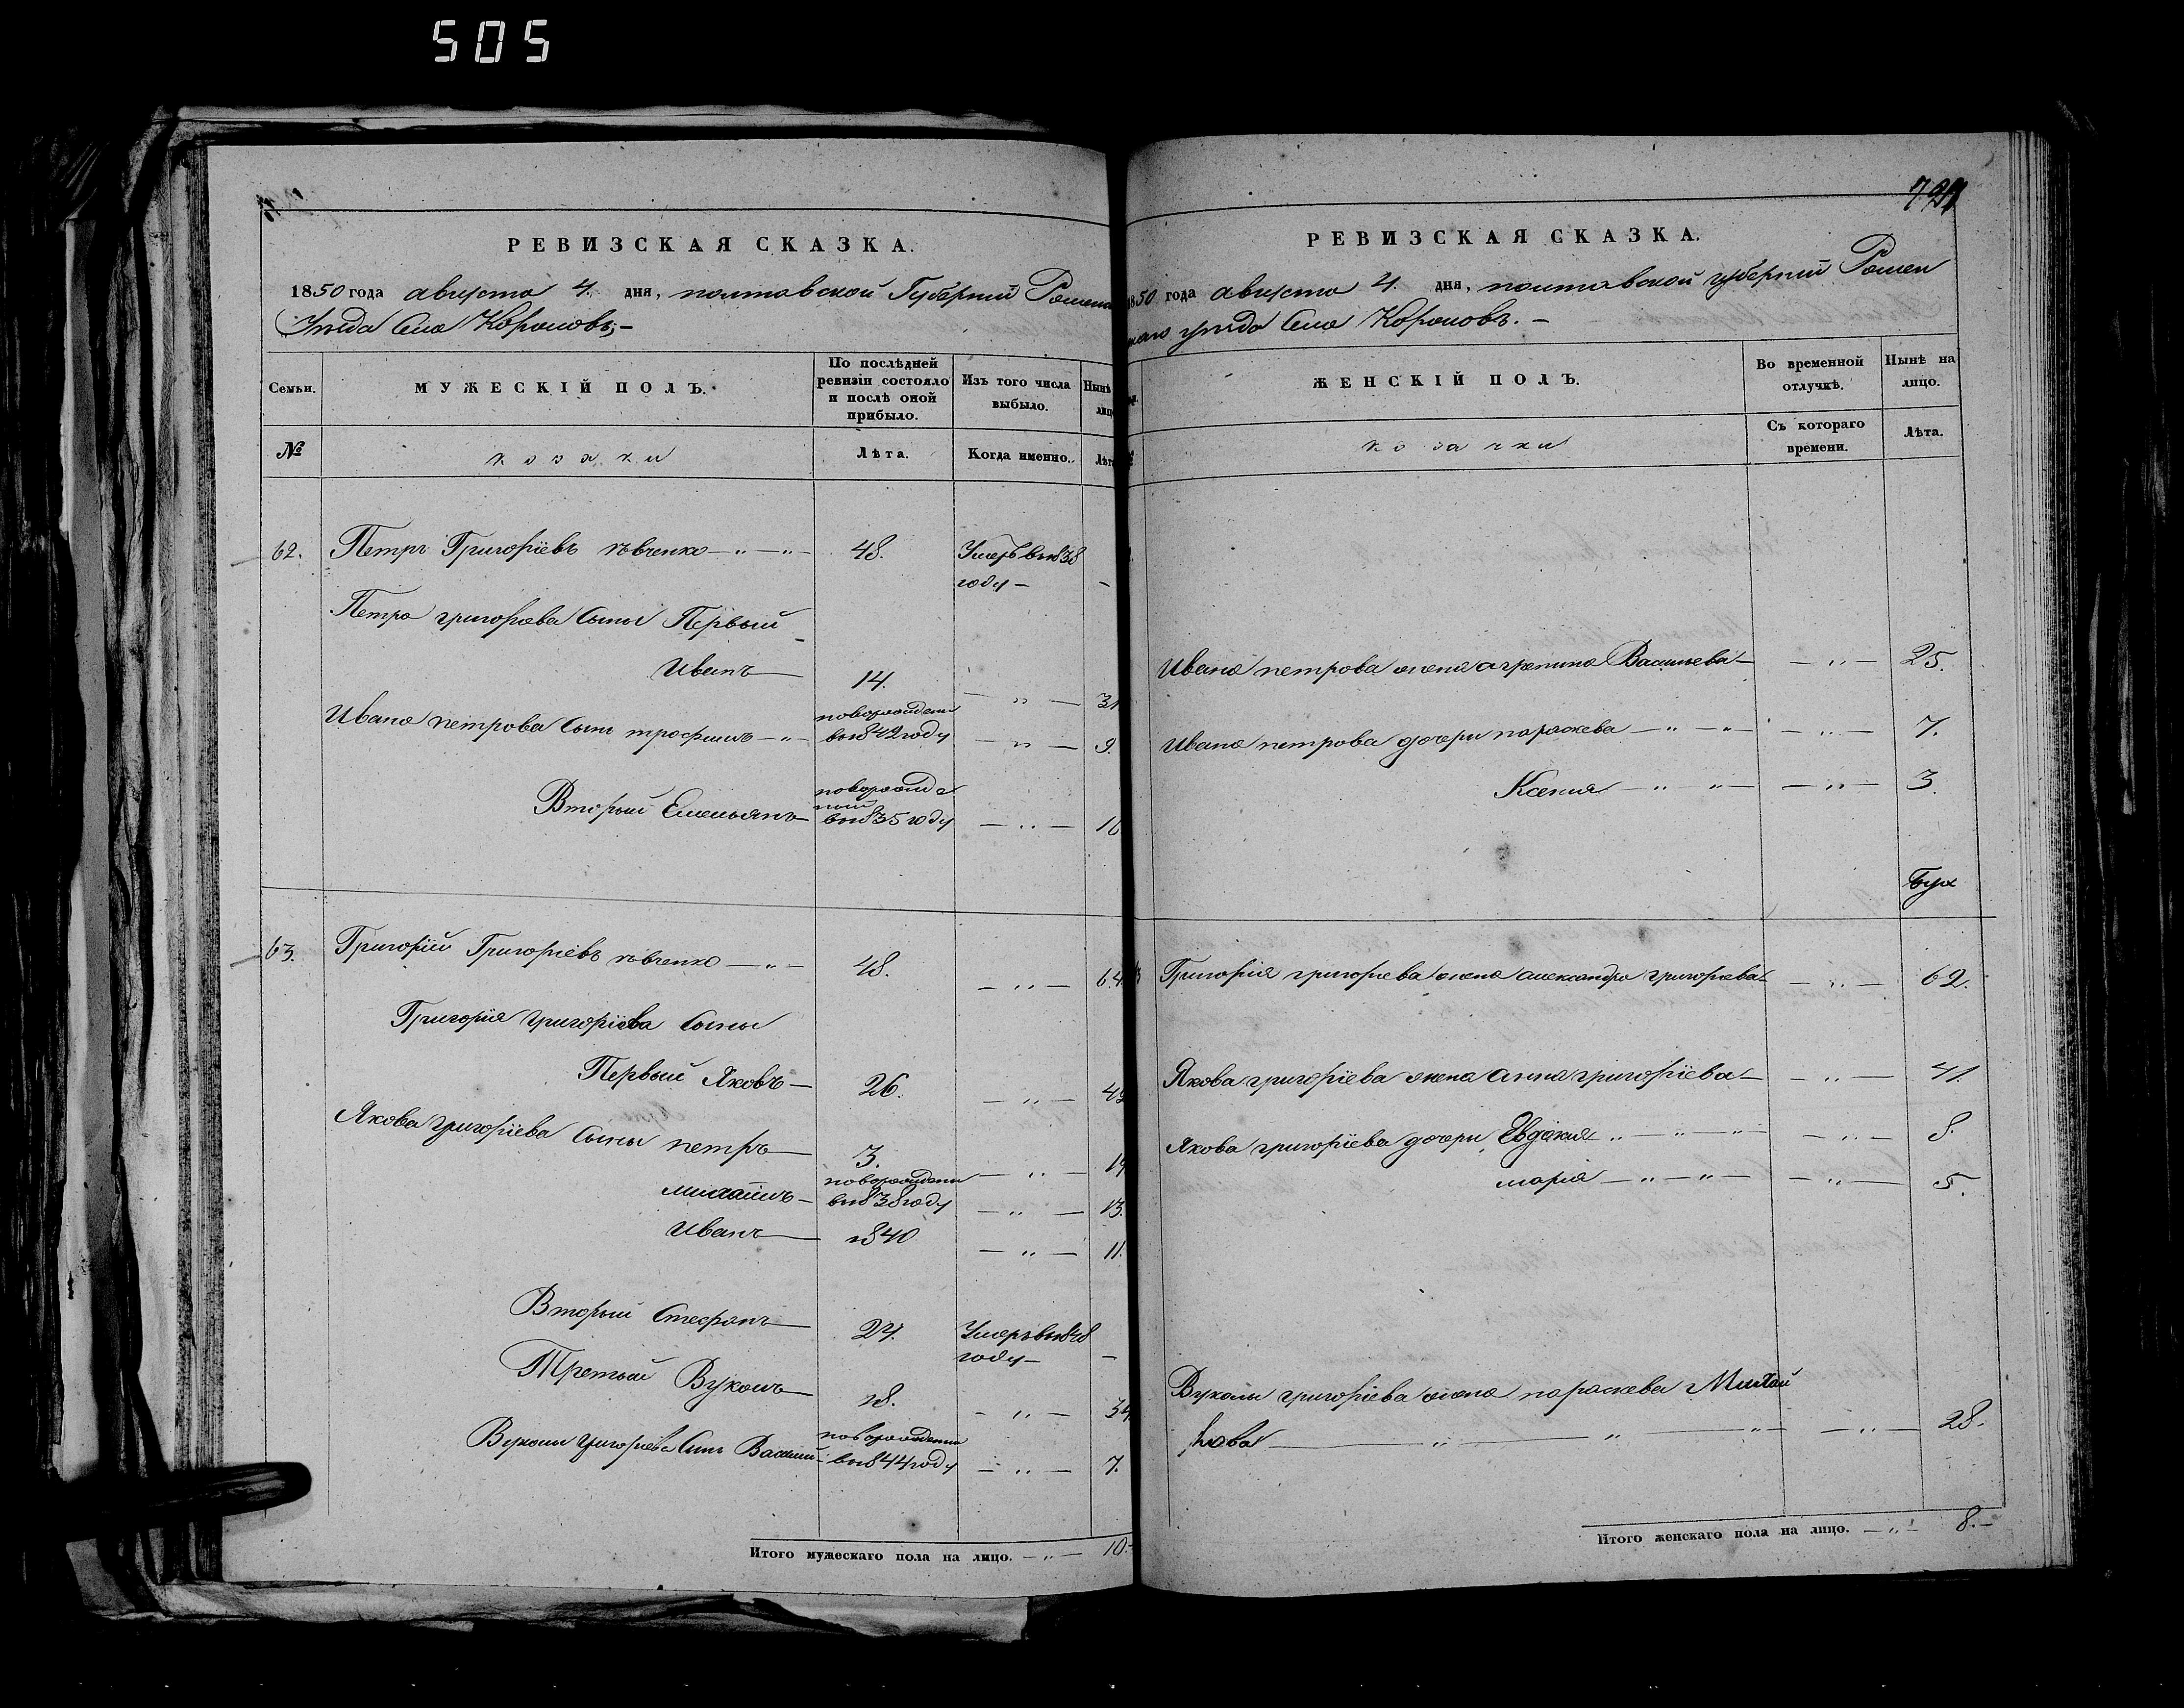 505
РЕВИЗСКАЯ СКАЗКА.
1850 года августа 4. дня, полтавской Губернии Ромен
Уезда Села Корововъ,-
Семьи.
МУЖЕСКІЙ ПОЛЪ.
По послѣдней ревизіи состояло и послѣ оной прибыло.
Изъ того числа выбыло.
Нынѣ
лиц
№
козаки
Лѣта.
Когда именно.
Лѣт
62. Петръ Григоріевъ 48. Умеръ в 1838
году - -
Петра григорьева Сыны Первый
Иванъ 14. - " -
Ивана петрова Сынъ трофимъ - " - новорожден
в 1842 году - " - 9.
Вторый Емельянъ новорожде
ный
в 1835 году - " -
63. Григорій Григоріевъ - " - 48. - " - 64.
Григорія Григоріева Сыны
Первый Яковъ - 26. - " -
Якова григоріева Сыны петръ 3. - " -
михаилъ - новорожден
в 1838 году - " - 13.
Иванъ 1840 - " - 11.
Вторый Стефанъ 24. Умеръ в 1848
году - -
Третьий Вуколъ 18. - " - 34
Вуколы Григорьева Сынъ Василий - новорожден
в 1844 году - " - 7.
Итого мужескаго пола на лицо. - " - 10.-
РЕВИЗСКАЯ СКАЗКА.
1850 года августа 4. дня, полтавской губернии Ромен
скаго уезда Села Корововъ. -
ЖЕНСКІЙ ПОЛЪ.
Во временной отлучкѣ.
Нынѣ на лицо.
козачки
Съ котораго времени.
Лѣта.
Ивана петрова жена агрепина Васильева - - " - 25.
Ивана петрова дочери параскева - " - " - - " - 7.
Ксения - " " - - " - 3.
Григорія григорьева жена александра григорьева - - " - 62.
Якова григоріева жена анна григоріева - - " - 41.
Якова григоріева дочери Евдокия " - " - " - - " - 8.
марія - " - " - - " - 5.
Вуколы григоріева жена параскева Михай
лова " " " - " - 28.
Итого женскаго пола на лицо. - " - 8.-